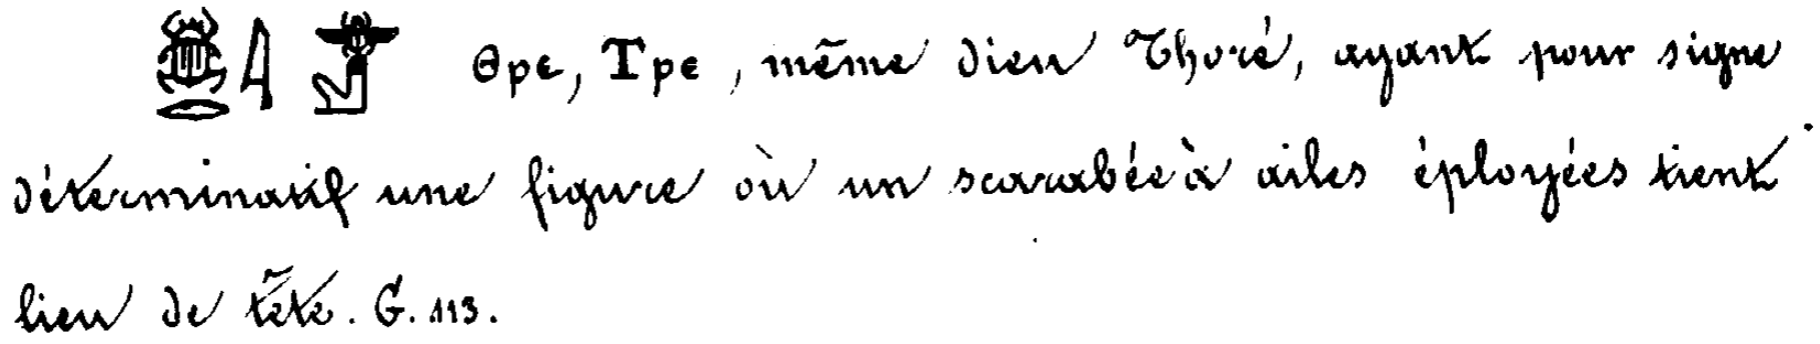 𓆣𓂋𓇋 Θρε, Τρε, même dieu Thoré, ayant pour signe
déterminatif une figure où un scarabée à ailes éployées tient
lieu de tête. G. 113.